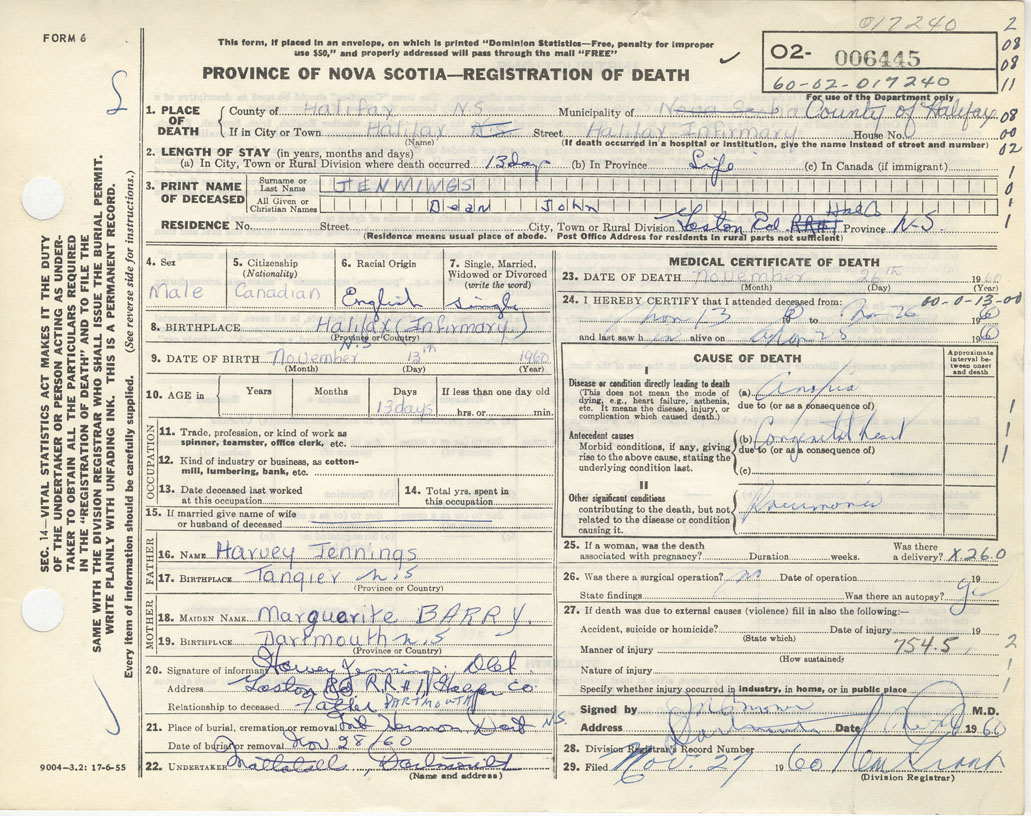 FORM 6
017240
This form, if placed in an envelope, on which is printed "Dominion Statistics—Free, penalty for improper
use $50," and properly addressed will pass through the mail "FREE"
PROVINCE OF NOVA SCOTIA—REGISTRATION OF DEATH
02- 006445
60-02-017240
For use of the Department only
2
08
08
11
08
00
02
1. PLACE OF DEATH
County of Halifax N.S.
Municipality of Nova Scotia County of Halifax
If in City or Town Halifax N.S. Street Halifax Infirmary House No.
(Name) (If death occurred in a hospital or institution, give the name instead of street and number)
2. LENGTH OF STAY (in years, months and days)
(a) In City, Town or Rural Division where death occurred 13 days (b) In Province Life (c) In Canada (if immigrant)
3. PRINT NAME OF DECEASED
Surname or Last Name JENNINGS
All Given or Christian Names Dean John
RESIDENCE No. Street City, Town or Rural Division Rd. RR#1 Province N.S.
(Residence means usual place of abode. Post Office Address for residents in rural parts not sufficient)
4. Sex
Male
5. Citizenship
(Nationality)
Canadian
6. Racial Origin
English
7. Single, Married, Widowed or Divorced
(write the word)
Single
8. BIRTHPLACE Halifax (Infirmary)
(Province or Country)
N.S
9. DATE OF BIRTH November 13th 1960
(Month) (Day) (Year)
10. AGE in Years Months Days If less than one day old
13 days hrs. or min.
OCCUPATION
11. Trade, profession, or kind of work as spinner, teamster, office clerk, etc.
12. Kind of industry or business, as cotton-mill, lumbering, bank, etc.
13. Date deceased last worked at this occupation
14. Total yrs. spent in this occupation
15. If married give name of wife or husband of deceased
FATHER
16. NAME Harvey Jennings
17. BIRTHPLACE Tangier N.S
(Province or Country)
MOTHER
18. MAIDEN NAME Marguerite BARRY.
19. BIRTHPLACE Dartmouth N.S
(Province or Country)
20. Signature of informant Harvey Jennings
Address Rd RR#1 Halifax Co.
DARTMOUTH
Relationship to deceased Father
21. Place of burial, cremation or removal Mt. Hermon Dart N.S.
Date of burial or removal Nov 28/60
22. UNDERTAKER Mattatall, Dartmouth
(Name and address)
MEDICAL CERTIFICATE OF DEATH
23. DATE OF DEATH November 26th 1960
(Month) (Day) (Year)
24. I HEREBY CERTIFY that I attended deceased from: 00-0-13-00
Nov 13 60 to Nov 26 1960
and last saw h im alive on 25 1960
CAUSE OF DEATH
Approximate interval between onset and death
I
Disease or condition directly leading to death
(This does not mean the mode of dying, e.g., heart failure, asthenia, etc. It means the disease, injury, or complication which caused death.)
(a) Anoxia
due to (or as a consequence of)
Antecedent causes
Morbid conditions, if any, giving rise to the above cause, stating the underlying condition last.
(b) Congenital heart
due to (or as a consequence of)
(c)
II
Other significant conditions
contributing to the death, but not related to the disease or condition causing it.
Pneumonia
25. If a woman, was the death associated with pregnancy? Duration weeks. Was there a delivery? X.26.0
26. Was there a surgical operation? no Date of operation 19
State findings Was there an autopsy?
27. If death was due to external causes (violence) fill in also the following:—
Accident, suicide or homicide? Date of injury 19
(State which)
Manner of injury 754.5
(How sustained)
Nature of injury
Specify whether injury occurred in industry, in home, or in public place
Signed by M.D.
Address Dartmouth Date 1960
28. Division Registrar's Record Number
29. Filed Nov. 27 1960
(Division Registrar)
SEC. 14—VITAL STATISTICS ACT MAKES IT THE DUTY
OF THE UNDERTAKER OR PERSON ACTING AS UNDER-
TAKER TO OBTAIN ALL THE PARTICULARS REQUIRED
IN THE "REGISTRATION OF DEATH" AND TO FILE THE
SAME WITH THE DIVISION REGISTRAR WHO SHALL ISSUE THE BURIAL PERMIT.
WRITE PLAINLY WITH UNFADING INK. THIS IS A PERMANENT RECORD.
Every item of information should be carefully supplied. (See reverse side for instructions.)
9004-3.2: 17-6-55